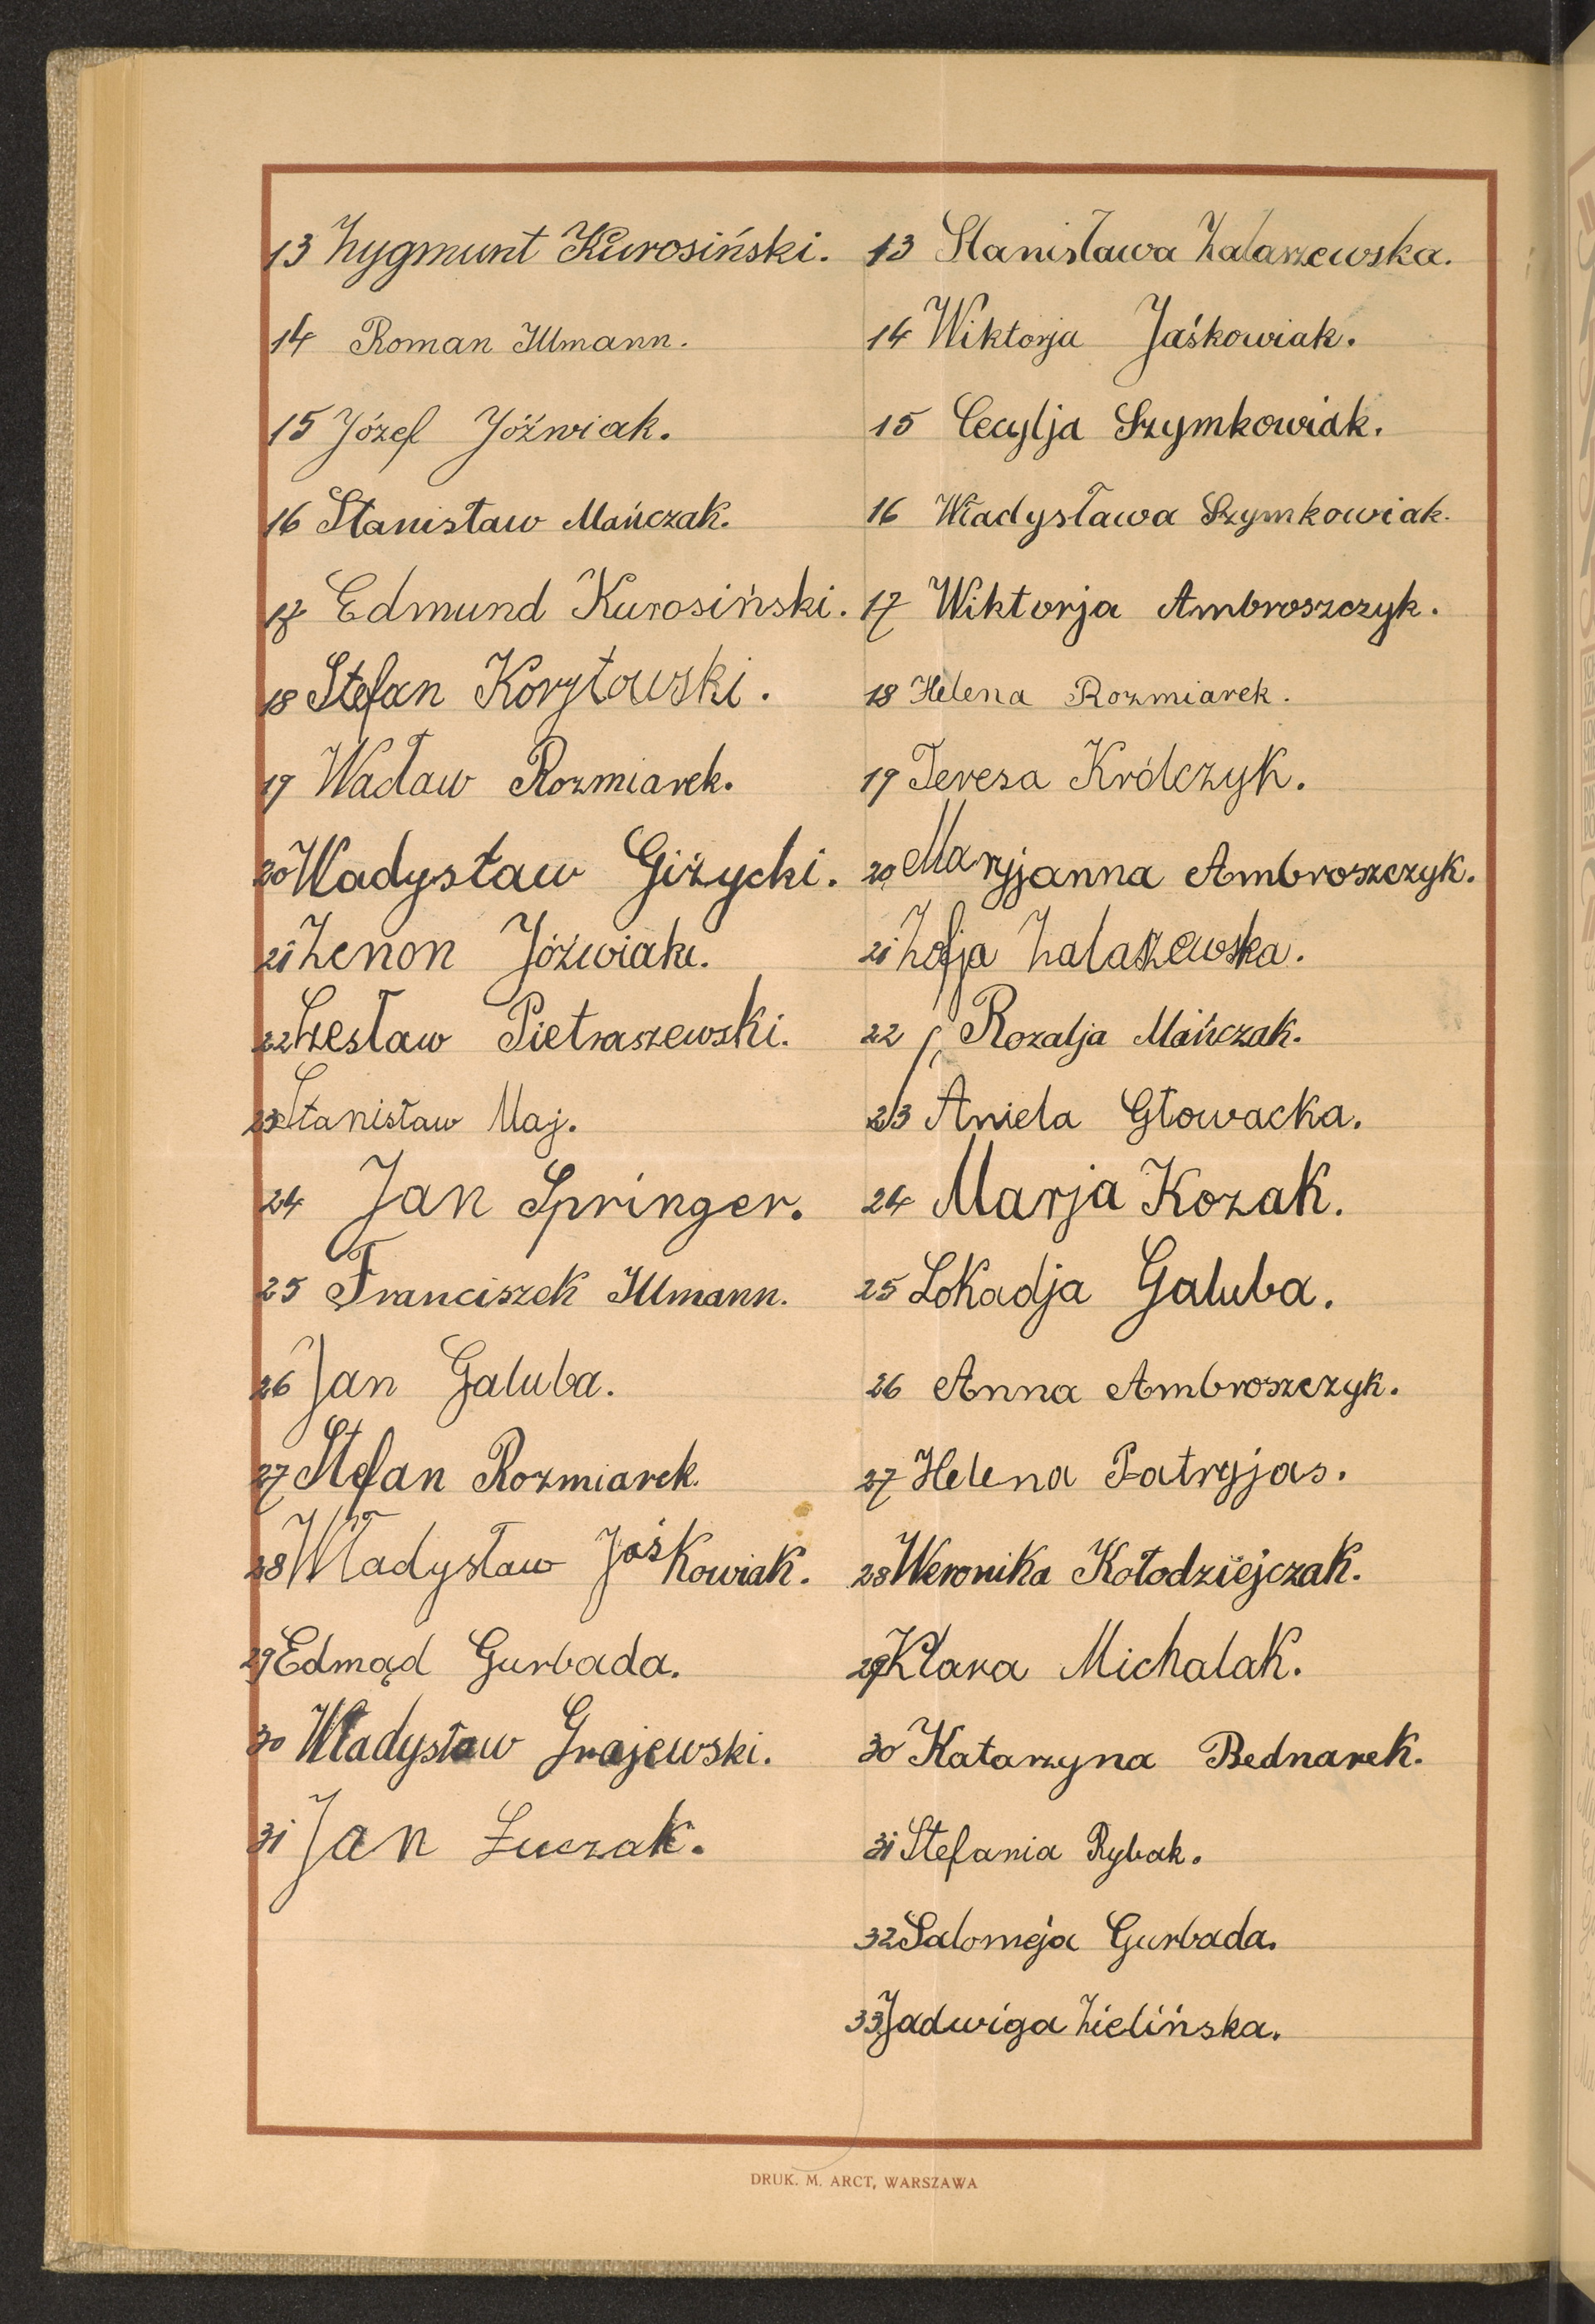 13 Zygmunt Kurosiński.
14 Roman Illmann.
15 Józef Jóźwiak.
16 Stanisław Mańczak.
17 Edmund Kurosiński.
18 Stefan Korytowski.
19 Wacław Rozmiarek.
20 Władysław Giżycki.
21 Zenon Jóźwiak.
22 Czesław Pietraszewski.
23 Stanisław Maj.
24 Jan Springer.
25 Franciszek Illmann.
26 Jan Galuba.
27 Stefan Rozmiarek.
28 Władysław Jaśkowiak.
29 Edmąd Gurbada.
30 Władysław Grajewski.
31 Jan Łuczak.
13 Stanisława Zalaszewska.
14 Wiktorja Jaśkowiak.
15 Cecylja Szymkowiak.
16 Władysława Szymkowiak.
17 Wiktorja Ambroszczyk.
18 Helena Rozmiarek.
19 Teresa Królczyk.
20 Maryjanna Ambroszczyk.
21 Zofja Zalaszewska.
22 Rozalja Mańczak.
23 Aniela Głowacka.
24 Marja Kozak.
25 Lokadja Galuba.
26 Anna Ambroszczyk.
27 Helena Patryjas.
28 Weronika Kołodziejczak.
29 Klara Michalak.
30 Katarzyna Bednarek.
31 Stefania Rybak.
32 Salomeja Gurbada.
33 Jadwiga Zielińska.
DRUK. M. ARCT, WARSZAWA